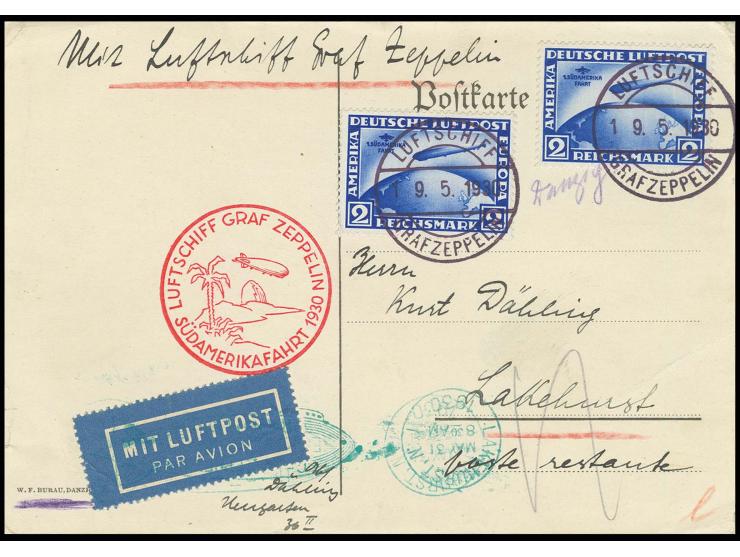 Mit Luftschiff Graf Zeppelin
Postkarte
DEUTSCHE LUFTPOST
AMERIKA
EUROPA
1. SÜDAMERIKA
FAHRT
2 REICHSMARK 2
LUFTSCHIFF
1 9. 5. 1930
GRAF ZEPPELIN
DEUTSCHE LUFTPOST
AMERIKA
EUROPA
1. SÜDAMERIKA
FAHRT
2 REICHSMARK 2
LUFTSCHIFF
1 9. 5. 1930
GRAF ZEPPELIN
Danzig
LUFTSCHIFF GRAF ZEPPELIN
SÜDAMERIKAFAHRT 1930
Herrn
Kurt Dähling
Lakehurst
poste restante
LAKEHURST, N.J.
MAY 31
8 AM
MIT LUFTPOST
PAR AVION
W. F. BURAU, DANZ
Dähling
Neugarten
36 II